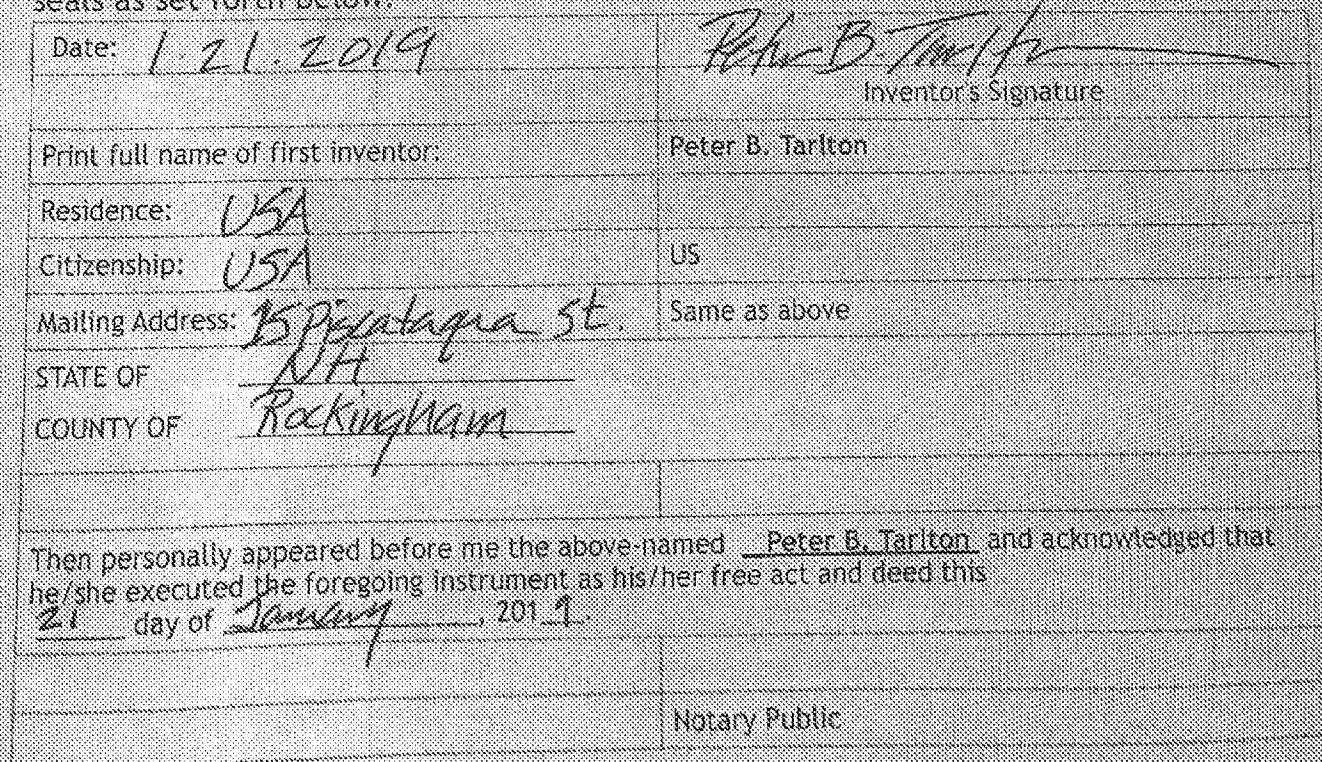 seals as set forth below.
Date: 1.21.2019 Peter B. Tarlton
Inventor's Signature
Print full name of first inventor: Peter B. Tarlton
Residence: USA
Citizenship: USA US
Mailing Address: 15 Piscataqua St. Same as above
STATE OF NH
COUNTY OF Rockingham
Then personally appeared before me the above-named Peter B. Tarlton and acknowledged that
he/she executed the foregoing instrument as his/her free act and deed this
21 day of January, 2019.
Notary Public